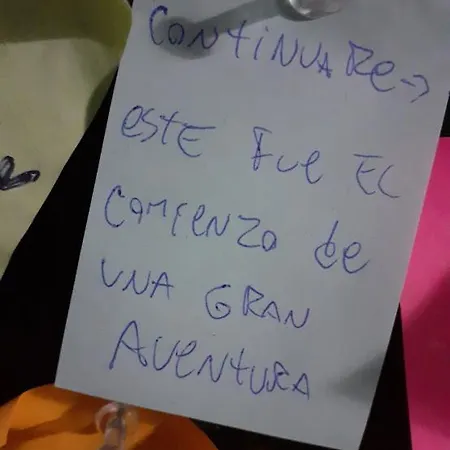 CONTINUARE→
ESTE FUE EL
COMIENZO de
UNA GRAN
AVENTURA